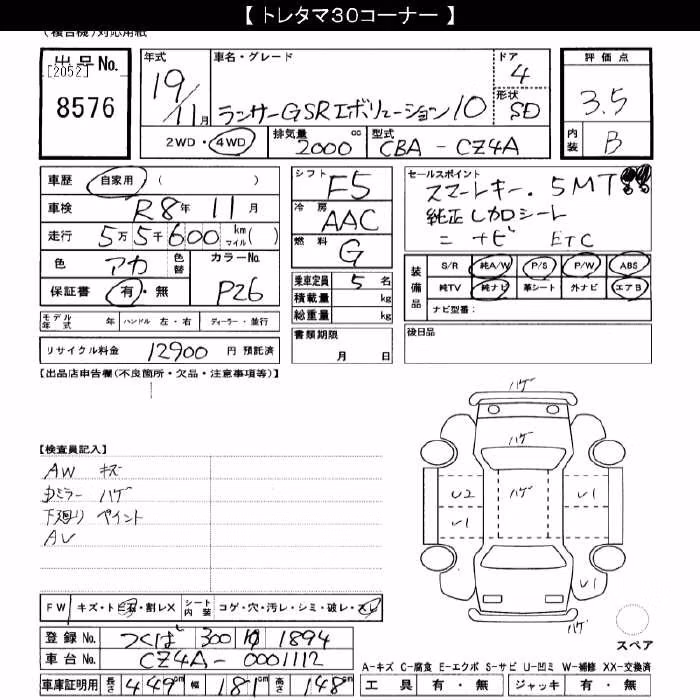 【 トレタマ30コーナー 】
(複合機)対応用紙
出品No. [2052] 8576
年式 19/11月
車名・グレード ランサーGSRエボリューション10
ドア 4
形状 SD
評価点 3.5
内装 B
2WD・4WD
排気量 2000 cc
型式 CBA-CZ4A
車歴 自家用 ( )
車検 R8年 11月
走行 5万5千600 km マイル( )
色 アカ 色替 カラーNo. P26
保証書 有・無
モデル年式 年 ハンドル 左・右 ディーラー・並行
リサイクル料金 12900 円 預託済
シフト F5
冷房 AAC
燃料 G
乗車定員 5 名
積載量 kg
総重量 kg
書類期限 月 日
セールスポイント
スマートキー. 5MT!!
純正レカロシート
ニ ナビ ETC
装備品 S/R 純A/W P/S P/W ABS
純TV 純ナビ 革シート 外ナビ エアB
ナビ型番:
後日品
【出品店申告欄(不良箇所・欠品・注意事項等)】
【検査員記入】
AW キズ
ミラー ハゲ
下廻り ペイント
ハゲ
ハゲ
U2 ハゲ U1
U1
U1
ハゲ
スペア
FW キズ・トビ石・割レX シート内装 コゲ・穴・汚レ・シミ・破レ・スレ
登録No. つくば 300 1894
車台No. CZ4A-0001112
車庫証明用 長さ 449cm 幅 181cm 高さ 148cm
A-キズ C-腐食 E-エクボ S-サビ U-凹ミ W-補修 XX-交換済
工具 有・無 ジャッキ 有・無